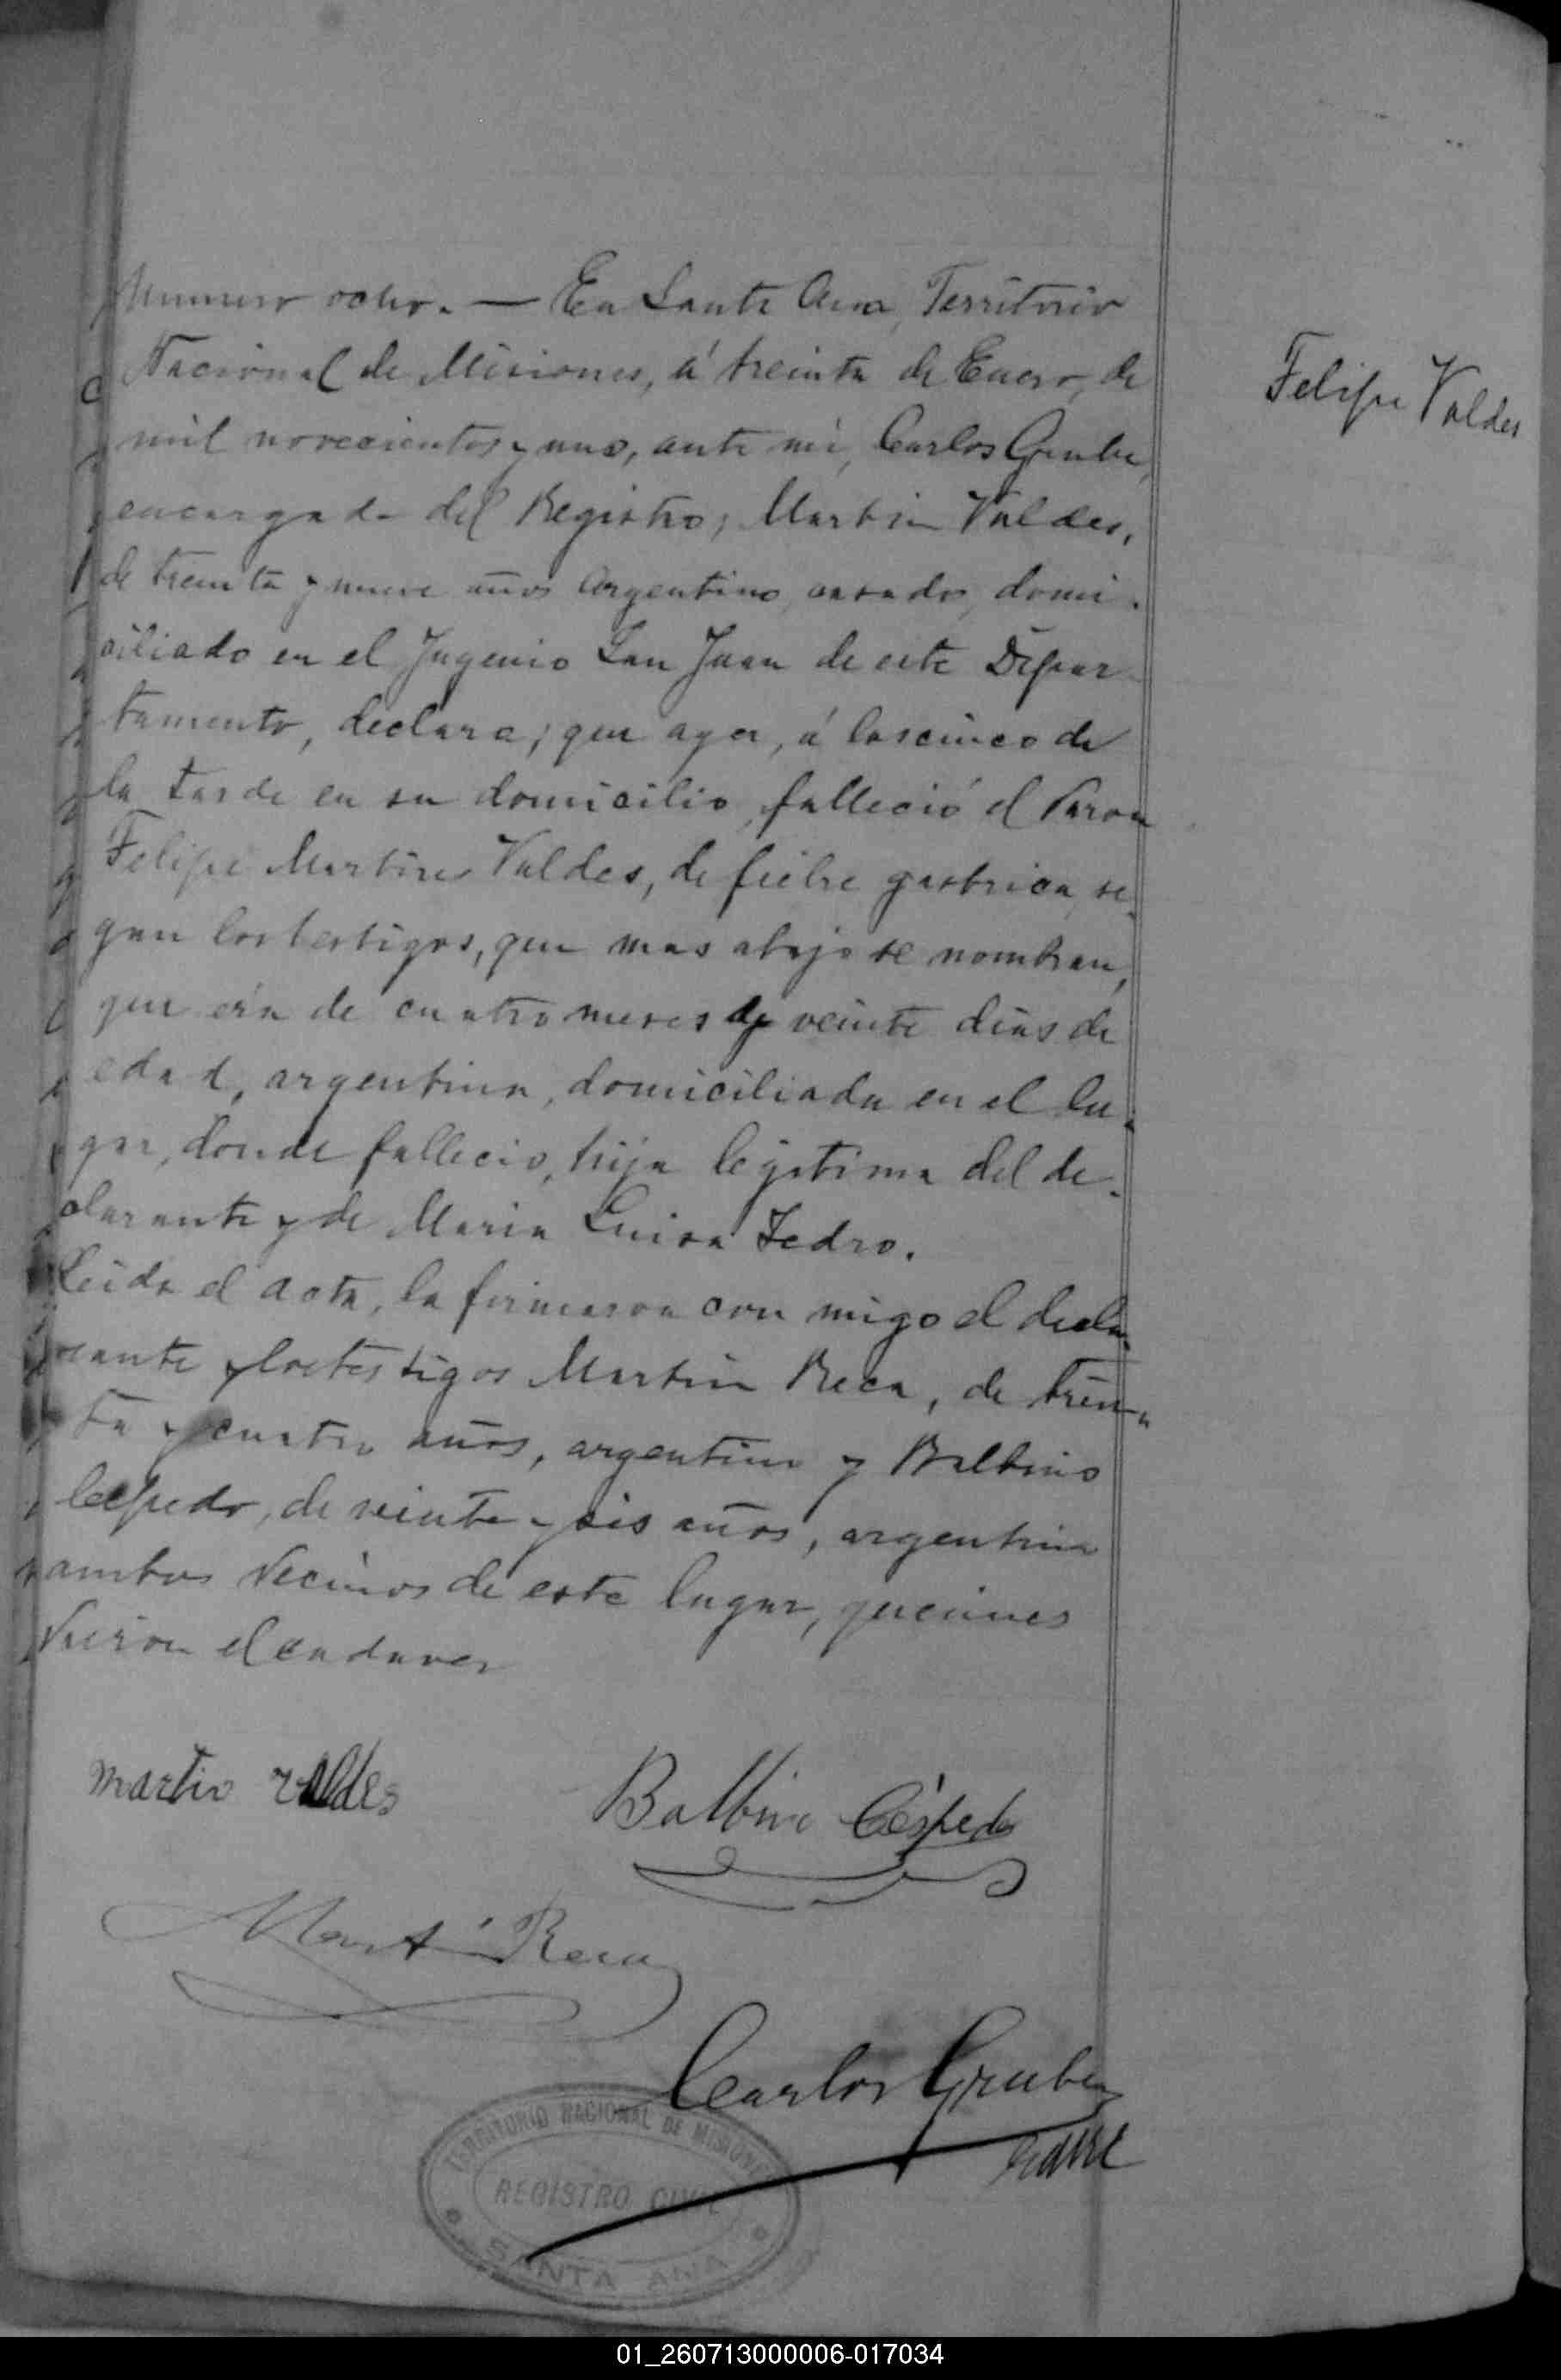 Numero ocho. — En Santa Ana, Territorio
Nacional de Misiones, á treinta de Enero, de
mil novecientos y uno, ante mi, Carlos Gruber,
encargado del Registro; Martin Valdes,
de treinta y nueve años Argentino, casado, domi-
ciliado en el Ingenio San Juan de este Depar-
tamento, declara; que ayer, á las cinco de
la tarde en su domicilio, falleció el Varon
Felipe Martires Valdes, de fiebre gastrica, se-
gun los testigos, que mas abajo se nombran,
que era de cuatro meses y veinte dias de
edad, argentina, domiciliada en el lu-
gar, donde fallecio, hija legitima del de-
clarante y de Maria Luisa Ledro.
Leida el acta, la firmaron con migo el decla-
rante y los testigos Martin Reca, de trein-
ta y cuatro años, argentino y Balbino
Cespedo, de veinte y seis años, argentino
ambos Vecinos de este lugar, quienes
Vieron el cadaver
Felipe Valdes
martin valdes
Balbino Céspedo
Martin Reca
Carlos Gruber
TERRITORIO NACIONAL DE MISIONES
REGISTRO CIVIL
SANTA ANA
01_260713000006-017034